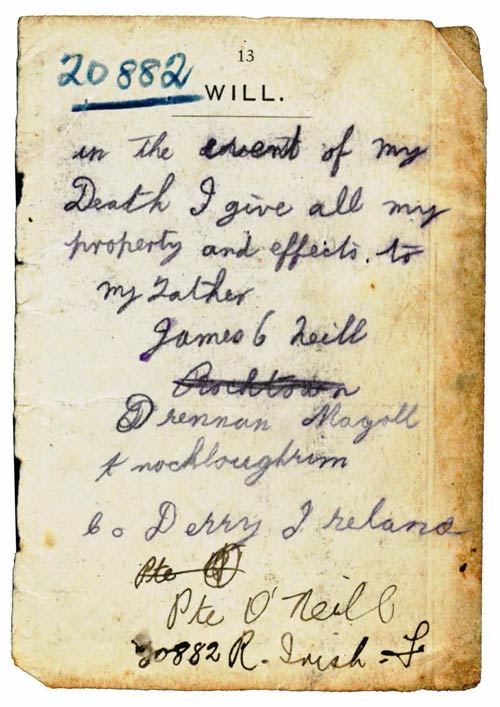 20882
13
WILL.
in the event of my
Death I give all my
property and effects. to
my Father
James O Neill
Rocktown
Drennan Magoll
Knockloughrim
Co Derry Ireland
Pte O
Pte O'Neill
20882 R. Irish. F